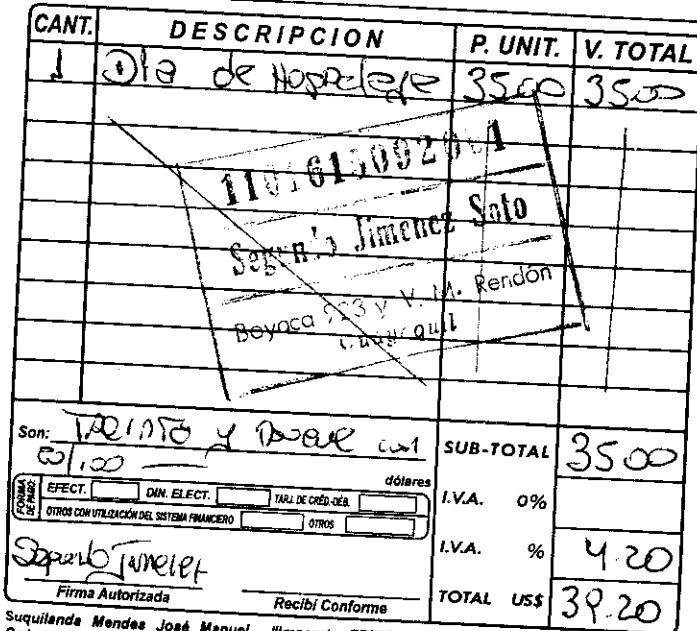 CANT. DESCRIPCION P. UNIT. V. TOTAL
1 Dia de Hospedaje 35.00 35.00
Segundo Jimenez Soto
Boyaca 923 y V. M. Rendón
Guayaquil
Son: Treinta y nueve con
20/100
dólares
SUB-TOTAL 35.00
FORMA DE PAGO: EFECT. DIN. ELECT. TARJ. DE CRÉD.-DÉB.
OTROS CON UTILIZACIÓN DEL SISTEMA FINANCIERO OTROS
I.V.A. 0%
I.V.A. % 4.20
Segundo Jimenez
Firma Autorizada Recibí Conforme
TOTAL US$ 39.20
Suquilanda Mendes José Manuel